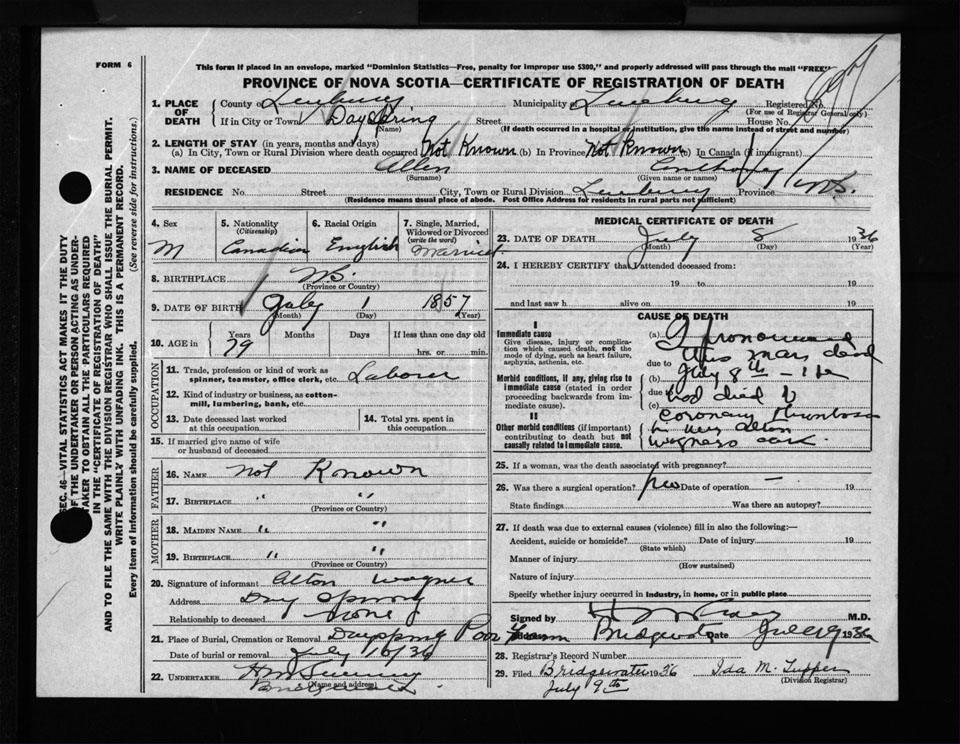 FORM 6
This form if placed in an envelope, marked "Dominion Statistics—Free, penalty for improper use $300," and properly addressed will pass through the mail "FREE"
PROVINCE OF NOVA SCOTIA—CERTIFICATE OF REGISTRATION OF DEATH
1. PLACE OF DEATH County of Lunenburg Municipality Lunenburg Registered No.
(For use of Registrar General only)
If in City or Town Day Spring Street House No.
(Name) (If death occurred in a hospital or institution, give the name instead of street and number)
2. LENGTH OF STAY (in years, months and days)
(a) In City, Town or Rural Division where death occurred Not Known (b) In Province Not Known (c) In Canada (if immigrant)
3. NAME OF DECEASED Allen Anthony
(Surname) (Given name or names)
RESIDENCE No. Street City, Town or Rural Division Lunenburg Province N.S.
(Residence means usual place of abode. Post Office Address for residents in rural parts not sufficient)
4. Sex 5. Nationality (Citizenship) 6. Racial Origin 7. Single, Married, Widowed or Divorced (write the word)
M Canadian English Married
8. BIRTHPLACE N.S.
(Province or Country)
9. DATE OF BIRTH July 1 1857
(Month) (Day) (Year)
10. AGE in Years Months Days If less than one day old
79 hrs. or min.
OCCUPATION
11. Trade, profession or kind of work as spinner, teamster, office clerk, etc. Laborer
12. Kind of industry or business, as cotton-mill, lumbering, bank, etc.
13. Date deceased last worked at this occupation 14. Total yrs. spent in this occupation
15. If married give name of wife or husband of deceased
FATHER
16. NAME not Known
17. BIRTHPLACE " "
(Province or Country)
MOTHER
18. MAIDEN NAME " "
19. BIRTHPLACE " "
(Province or Country)
20. Signature of informant Alton Wagner
Address Day Spring
Relationship to deceased none
21. Place of Burial, Cremation or Removal Dayspring Poor Farm
Date of burial or removal July 10/36
22. UNDERTAKER
(Name and address)
MEDICAL CERTIFICATE OF DEATH
23. DATE OF DEATH July 8 1936
(Month) (Day) (Year)
24. I HEREBY CERTIFY that I attended deceased from:
19 to 19
and last saw h alive on 19
CAUSE OF DEATH
I
Immediate cause
Give disease, injury or complication which caused death, not the mode of dying, such as heart failure, asphyxia, asthenia, etc.
Morbid conditions, if any, giving rise to immediate cause (stated in order proceeding backwards from immediate cause).
II
Other morbid conditions (if important) contributing to death but not causally related to immediate cause.
(a) I pronounced
due to this man dead
(b) July 8th
due to
(c) died
Coronary Thrombosis
Alton
Wagners
25. If a woman, was the death associated with pregnancy?
26. Was there a surgical operation? no Date of operation — 19
State findings Was there an autopsy?
27. If death was due to external causes (violence) fill in also the following:—
Accident, suicide or homicide? Date of injury 19
(State which)
Manner of injury
(How sustained)
Nature of injury
Specify whether injury occurred in industry, in home, or in public place
Signed by M.D.
Address Bridgewater Date July 9 1936
28. Registrar's Record Number
29. Filed Bridgewater 1936 Ida M. Tupper
July 9th (Division Registrar)
SEC. 46—VITAL STATISTICS ACT MAKES IT THE DUTY
OF THE UNDERTAKER OR PERSON ACTING AS UNDER-
TAKER TO OBTAIN ALL THE PARTICULARS REQUIRED
IN THE "CERTIFICATE OF REGISTRATION OF DEATH"
AND TO FILE THE SAME WITH THE DIVISION REGISTRAR WHO SHALL ISSUE THE BURIAL PERMIT.
WRITE PLAINLY WITH UNFADING INK. THIS IS A PERMANENT RECORD.
Every item of information should be carefully supplied. (See reverse side for instructions.)